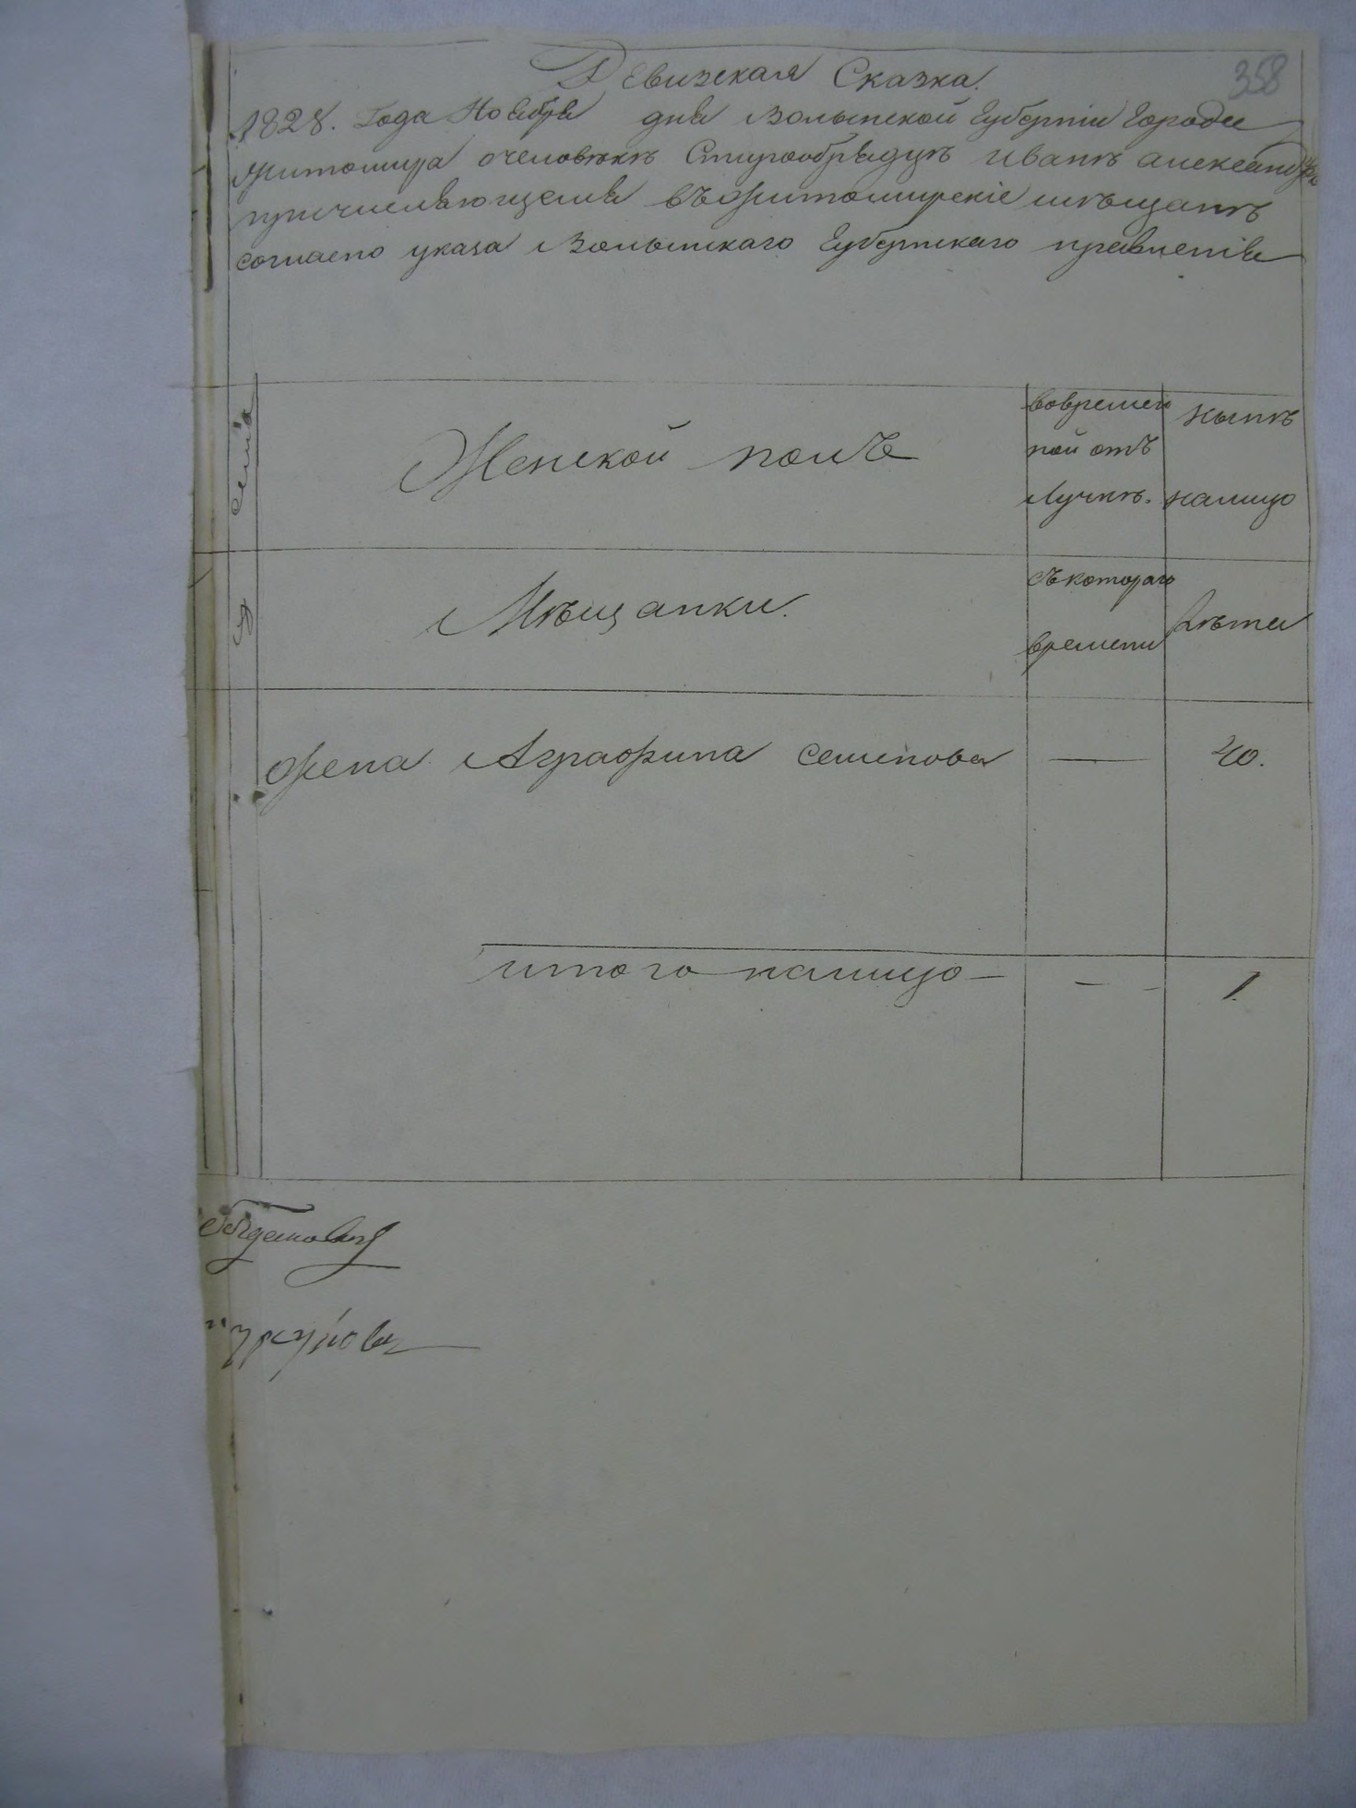 358
Ревизская Сказка.
1828. Года Ноября дня Волынской Губерніи Города
Житомира очеловѣкѣ Старообрядцѣ Иванѣ Александро
причисляющемся въ Житомирскіе мѣщанѣ
согласно указа Волынскаго Губернскаго правленія
Женской полъ
вовремен
ной отъ
лучкѣ.
нынѣ
налицо
Мѣщанки.
съкотораго
времени
Лѣта
жена Аграфина Семенова — 40.
итого налицо — — - 1.